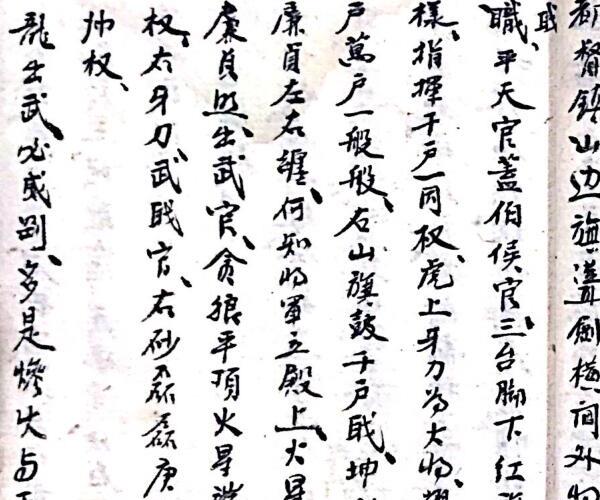 都督鎮山边旗盖劍橫间外
職、平天官蓋伯侯官、三台脚下红
樣、指揮千戶一同权、虎上牙刀为大将
户萬户一般般、右山旗鼓千户戝、坤
廉貞左右纏、何知将軍立殿上、火星
廉貞照出武官、貪狼平頂火星
权、右牙刀武戝官、右砂磊磊庚
帅权、
龍出武、必威剅、多是慘火与